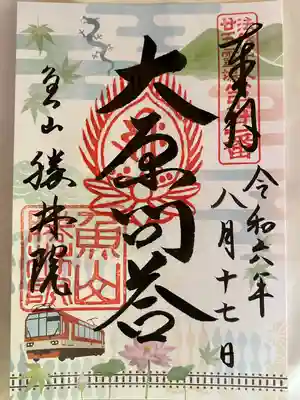 奉拝
令和六年
八月十七日
大原問答
魚山 勝林院
魚山